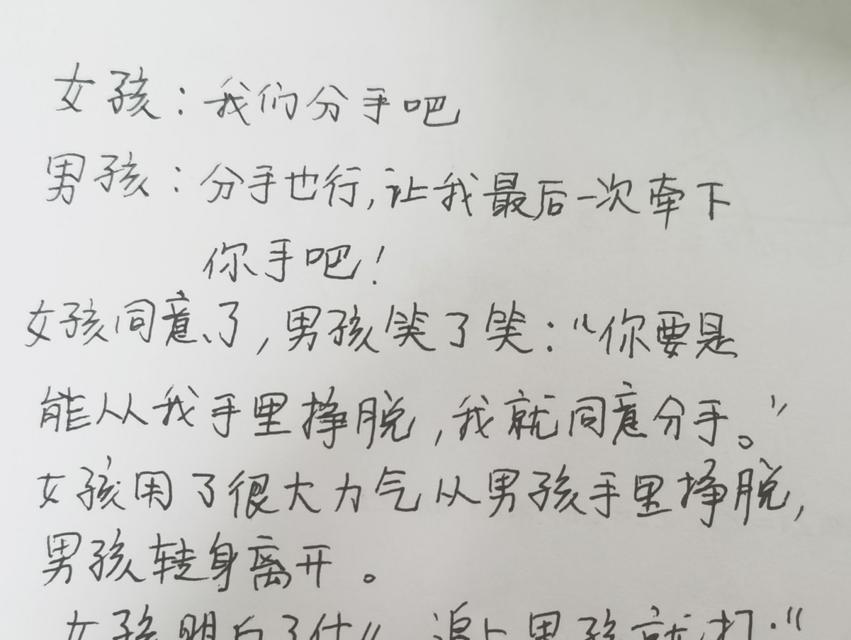 女孩：我们分手吧
男孩：分手也行,让我最后一次牵下
你手吧！
女孩同意了,男孩笑了笑：“你要是
能从我手里挣脱,我就同意分手。”
女孩用了很大力气从男孩手里挣脱,
男孩转身离开。
女孩明白了什 追上男孩就打：“